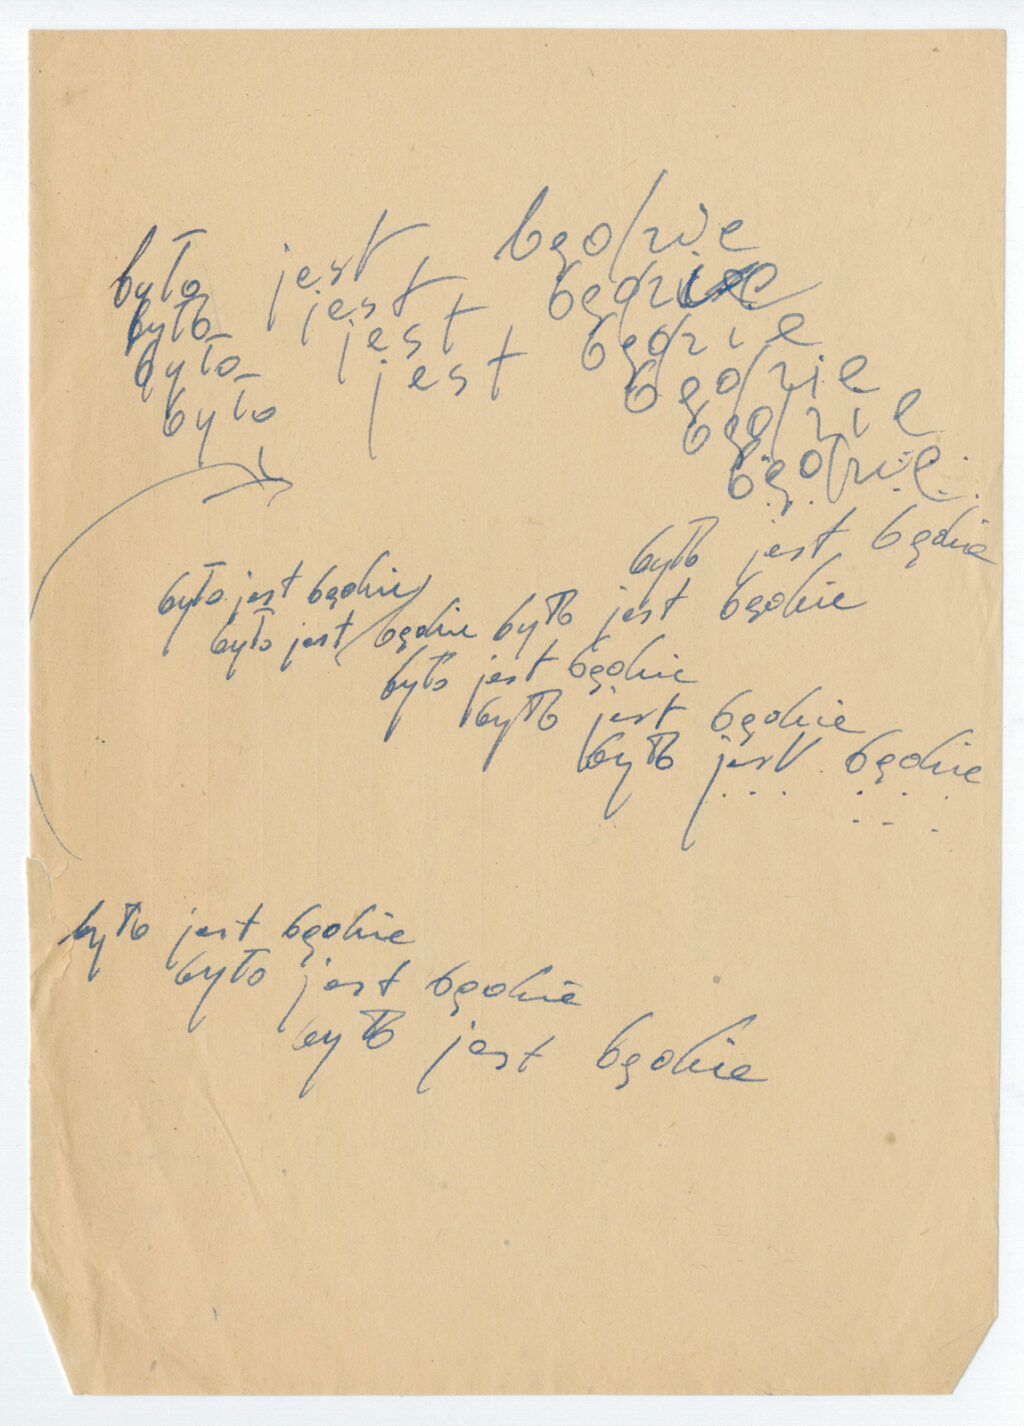 było jest będzie
było jest będzie
było jest będzie
było jest będzie
będzie
będzie
było jest będzie
było jest będzie
było jest będzie było jest będzie
było jest będzie
było jest będzie
było jest będzie
było jest będzie
było jest będzie
było jest będzie